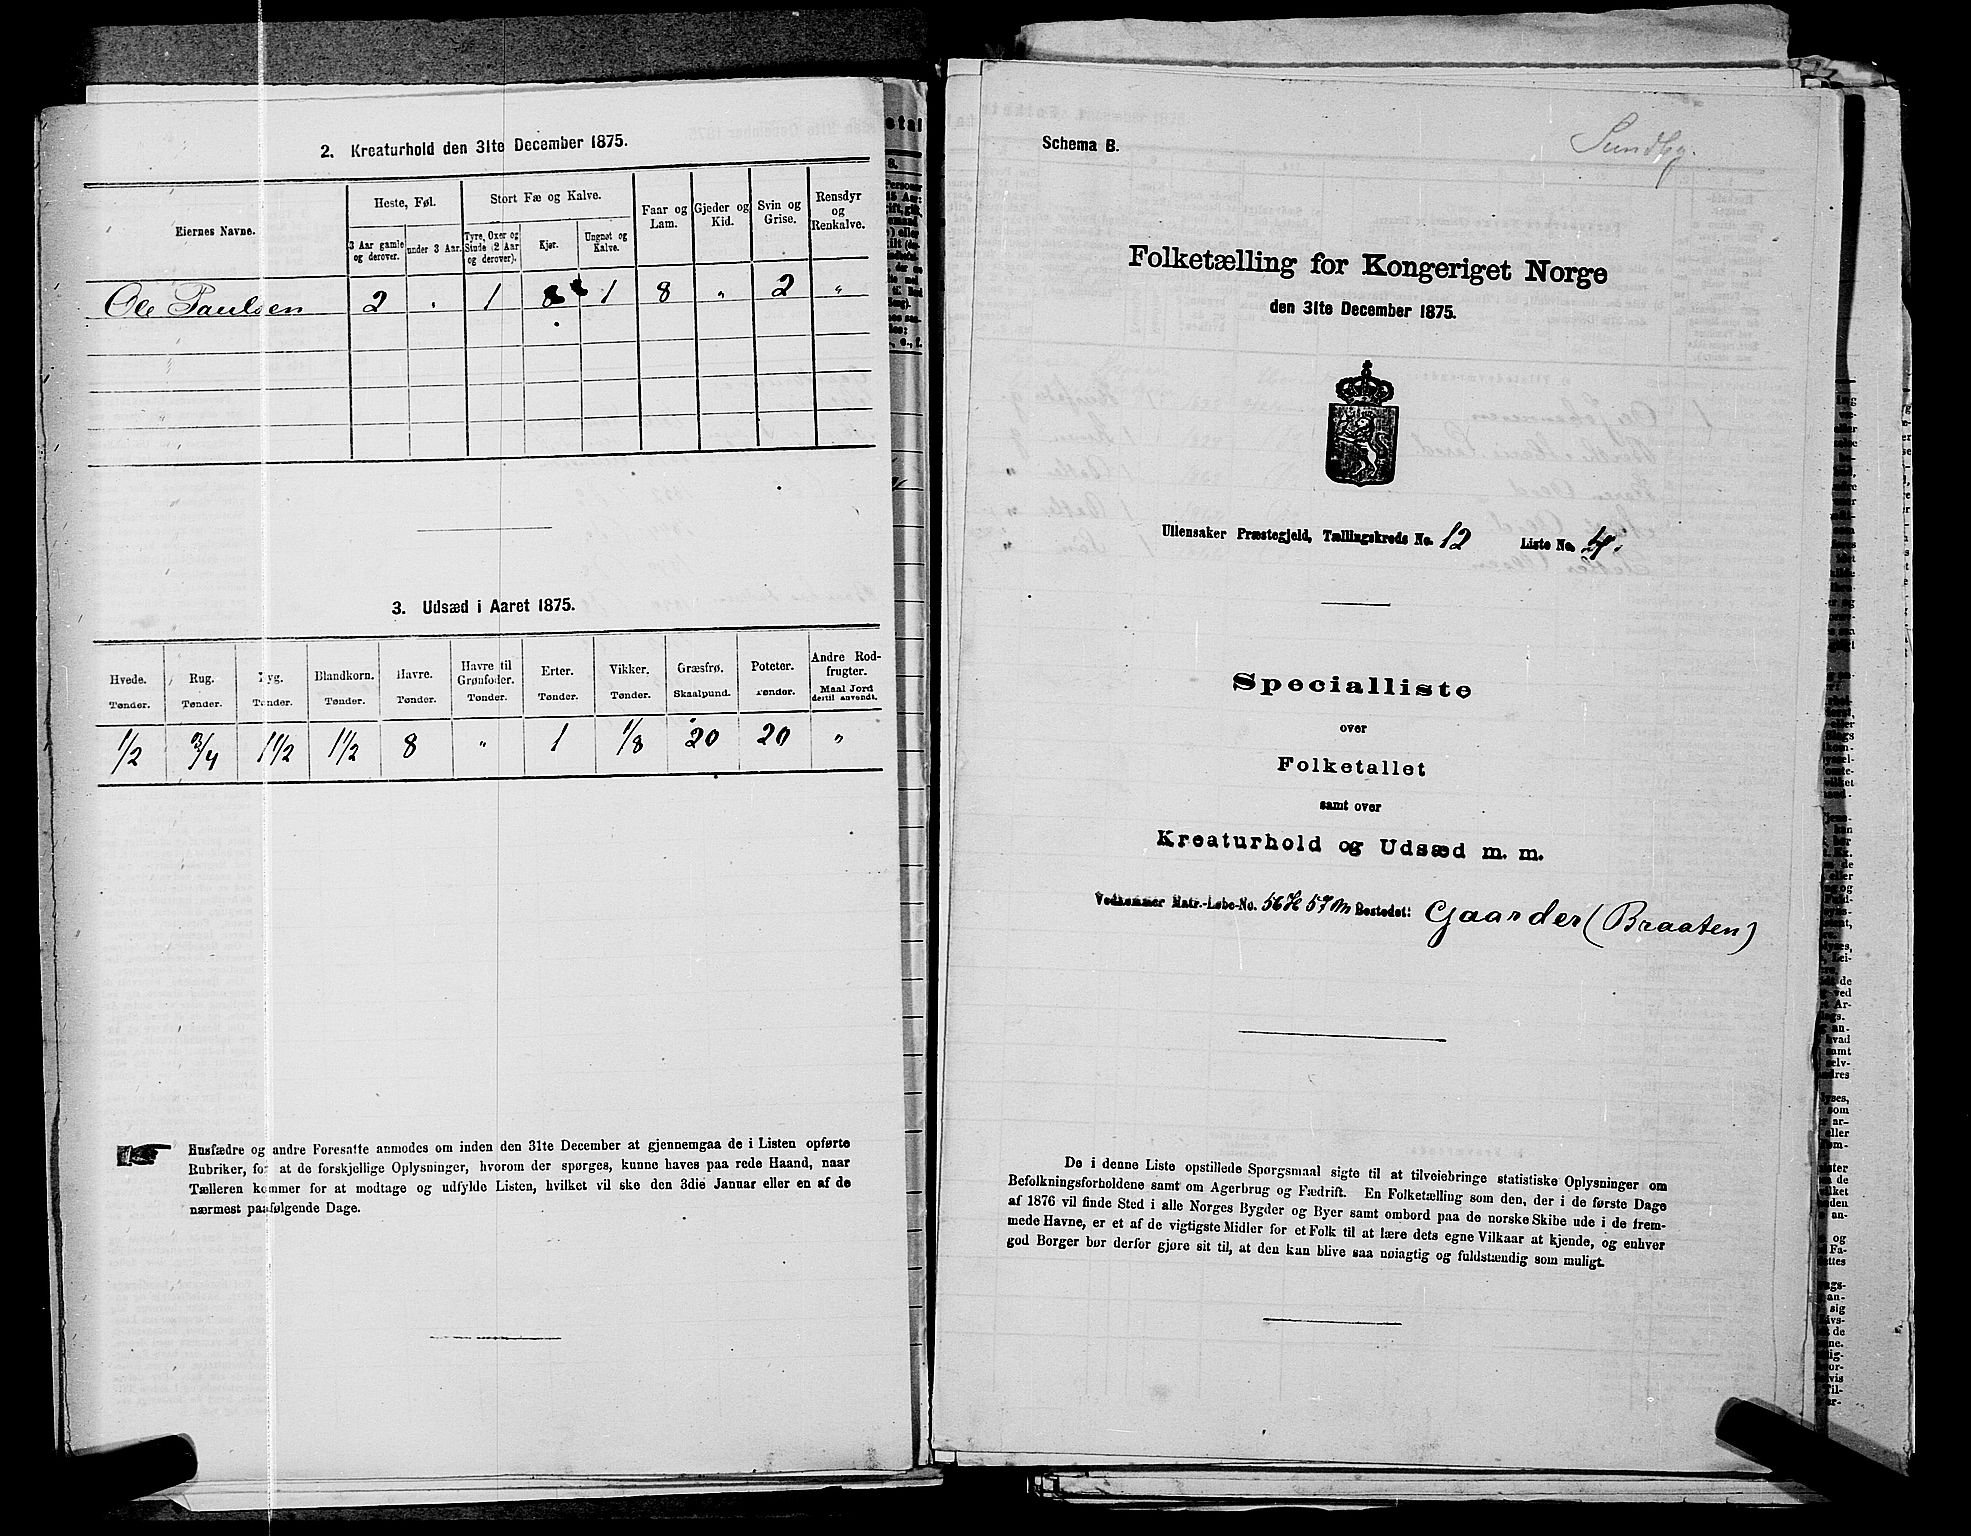 2. Kreaturhold den 31te December 1875.
Eiernes Navne.
Heste, Føl.
Stort Fæ og Kalve.
Faar og Lam.
Gjeder og Kid.
Svin og Grise.
Rensdyr og Renkalve.
3 Aar gamle og derover.
under 3 Aar.
Tyre, Oxer og Stude (2 Aar og derover).
Kjør.
Ungnøt og Kalve.
Ole Paulsen 2 " 1 8 1 8 " 2 "
3. Udsæd i Aaret 1875.
Hvede. Rug. Byg. Blandkorn. Havre. Havre til Grønfoder. Erter. Vikker. Græsfrø. Poteter. Andre Rodfrugter.
Tønder. Tønder. Tønder. Tønder. Tønder. Tønder. Tønder. Tønder. Skaalpund. Tønder. Maal Jord dertil anvendt.
1/2 3/4 1 1/2 1 1/2 8 " 1 1/8 20 20 "
Husfædre og andre Foresatte anmodes om inden den 31te December at gjennemgaa de i Listen opførte
Rubriker, for at de forskjellige Oplysninger, hvorom der spørges, kunne haves paa rede Haand, naar
Tælleren kommer for at modtage og udfylde Listen, hvilket vil ske den 3die Januar eller en af de
nærmest paafølgende Dage.
Schema B.
Sundby.
Folketælling for Kongeriget Norge
den 31te December 1875.
Ullensaker Præstegjeld, Tællingskreds No. 12 Liste No. 4.
Specialliste
over
Folketallet
samt over
Kreaturhold og Udsæd m. m.
Vedkommer Matr.-Løbe-No. 56 57 Bostedet: Gaarder (Braaten)
De i denne Liste opstillede Spørgsmaal sigte til at tilveiebringe statistiske Oplysninger om
Befolkningsforholdene samt om Agerbrug og Fædrift. En Folketælling som den, der i de første Dage
af 1876 vil finde Sted i alle Norges Bygder og Byer samt ombord paa de norske Skibe ude i de frem-
mede Havne, er et af de vigtigste Midler for et Folk til at lære dets egne Vilkaar at kjende, og enhver
god Borger bør derfor gjøre sit til, at den kan blive saa nøiagtig og fuldstændig som muligt.